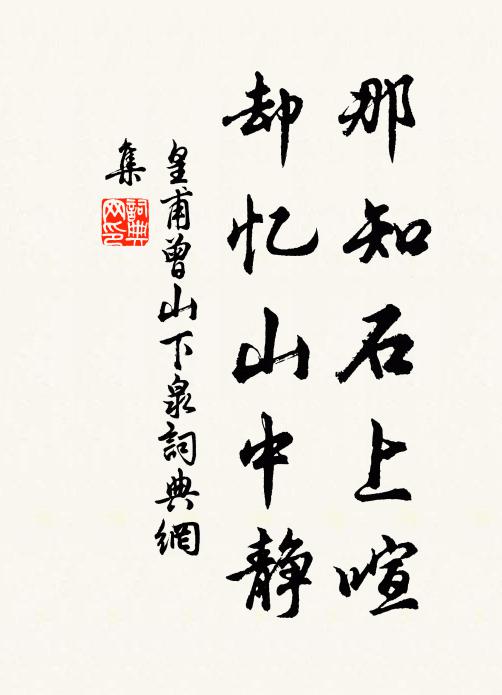 那知石上喧
却忆山中静
皇甫曾山下泉詞典網
集
詞典網印